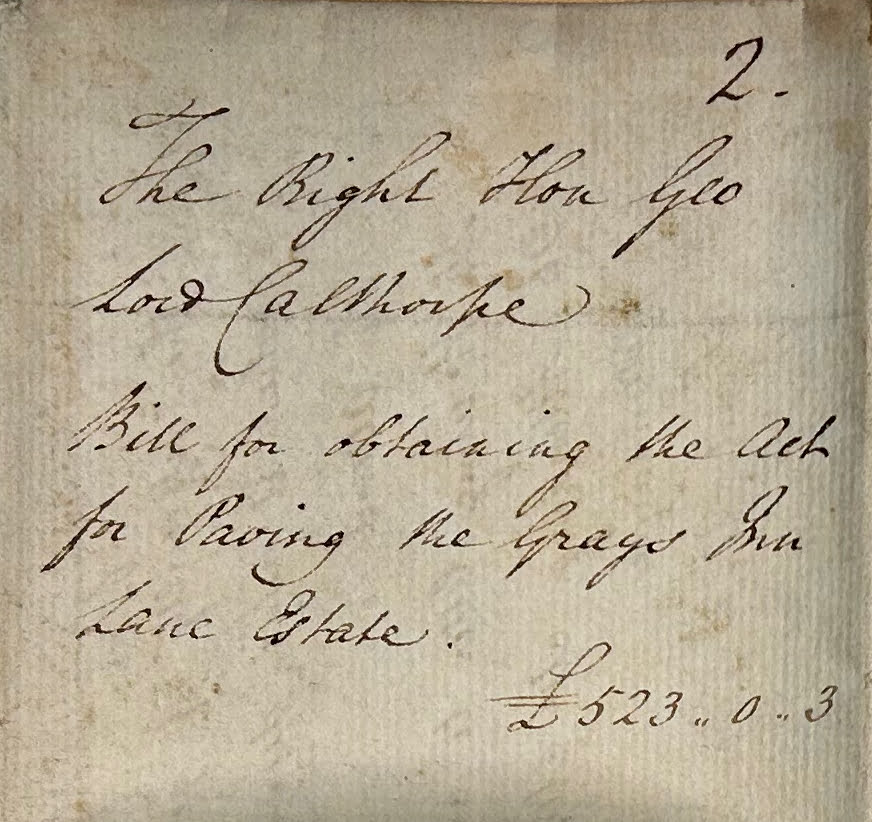 2.
The Right Hon Geo
Lord Calthorpe
Bill for obtaining the Act
for Paving the Grays Inn
Lane Estate.
£523 .. 0 .. 3